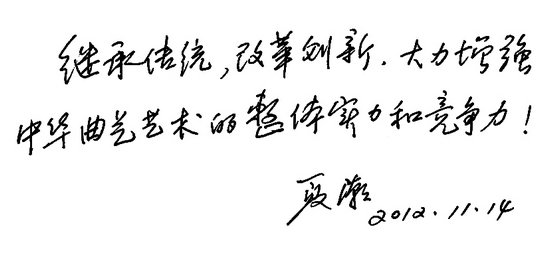 继承传统,改革创新.大力增强
中华曲艺艺术的整体实力和竞争力!
夏潮 2012.11.14